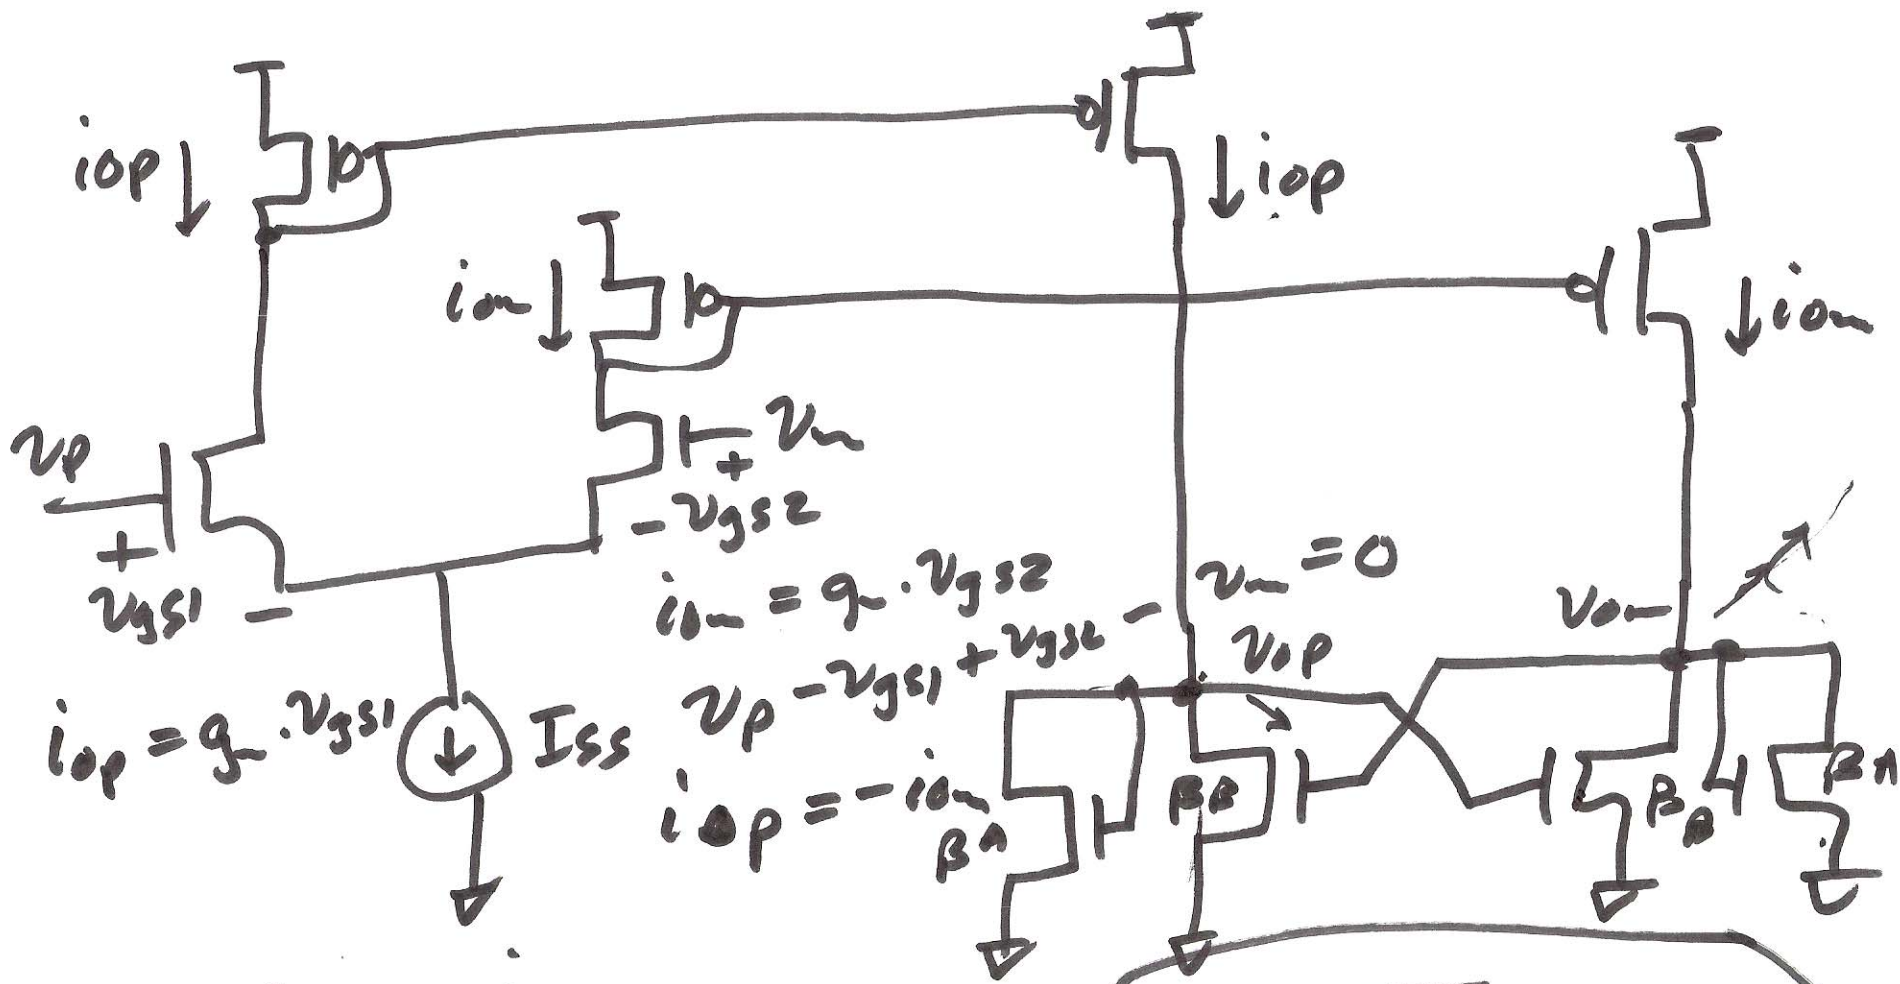 iop
iop
iom
iom
vp
+
vgs1 -
vm
+
- vgs2
iom = gm · vgs2
vp - vgs1 + vgs2 - vm = 0
iop = gm · vgs1
Iss
iop = -iom
vop
vom
βA
βB
βB
βA